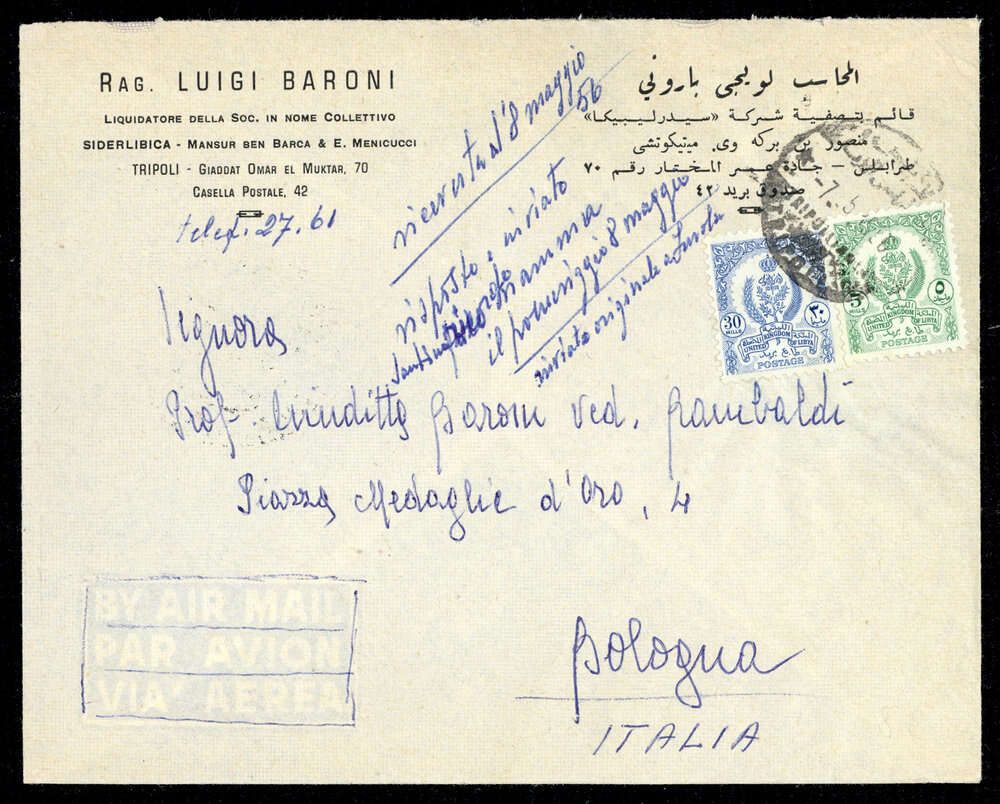 RAG. LUIGI BARONI
LIQUIDATORE DELLA SOC. IN NOME COLLETTIVO
SIDERLIBICA - MANSUR BEN BARCA & E. MENICUCCI
TRIPOLI - GIADDAT OMAR EL MUKTAR, 70
CASELLA POSTALE, 42
27.61
المحاسب لويجى باروني
قائم بتصفية شركة «سيدرليبيكا»
منصور بن بركه وى. مينيكوتشى
طرابلس - جادة عمر المختار رقم ٧٠
صندوق بريد ٤٢
ricevuta l'8 maggio
56
risposto e inviato
mamma
il pomeriggio 8 maggio
inviata originale a
30
MILLS
٣٠
UNITED KINGDOM OF LIBYA
POSTAGE
5
MILLS
٥
UNITED KINGDOM OF LIBYA
POSTAGE
Signora
Prof. Baroni ved. Rambaldi
Piazza Medaglie d'Oro, 4
BY AIR MAIL
PAR AVION
VIA AEREA
Bologna
ITALIA